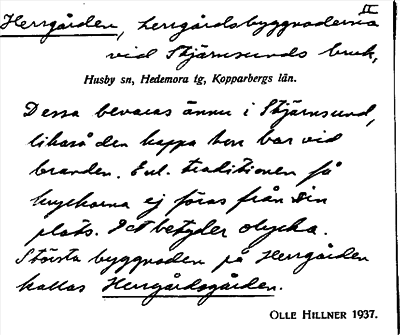 II
Herrgården, herrgårdsbyggnaderna
vid Stjärnsunds bruk,
Husby sn, Hedemora tg, Kopparbergs län.
Dessa bevaras ännu i Stjärnsund,
likaså den kappa hon bar vid
branden. Enl. traditionen få
kryckorna ej föras från sin
plats. Det betyder olycka.
Största byggnaden på Herrgården
kallas Herrgårdsgården.
OLLE HILLNER 1937.